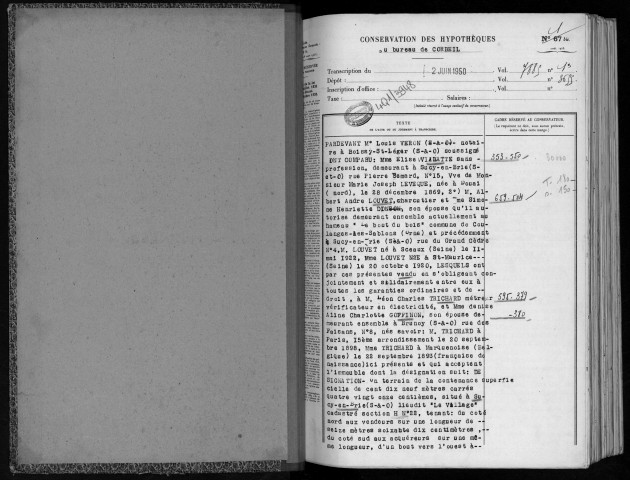 CONSERVATION DES HYPOTHÈQUES
au bureau de CORBEIL
Nº 67
Transcription du 2 JUIN 1950 Vol. 7885 nº 1
Dépôt : Vol. nº
Inscription d'office :
Taxe : Salaires :
491/3948
TEXTE
CADRE RÉSERVÉ AU CONSERVATEUR
PARDEVANT Mᵉ Louis VERON (S-&-O)- notai-
re à Boissy-St-Léger (S-&-O) soussigné
ONT COMPARU: Mme Elise VIABATTE sans
profession, demeurant à Sucy-en-Brie(S-
et-O) rue Pierre Sémard, Nº15, Vve de Mon-
sieur Marie Joseph LEVEQUE, née à Douai
(nord), le 28 décembre 1869, 2°) M, Al-
bert André LOUVET, charcutier et Mme Simo-
ne Henriette son épouse qu'il au-
torise demeurant ensemble actuellement au
hameau " Le bout du bois" commune de Cou-
langes-les-Sablons (Orne) et précédemment
à Sucy-en-Brie (S&O) rue du Grand Cèdre
Nº4, M, LOUVET né à Sceaux (Seine) le 11-
mai 1922, Mme LOUVET NEE A St-Maurice---
(Seine) le 20 octobre 1920, LESQUELS ont
par ces présentes vendu en s'obligeant con-
jointement et solidairement entre eux à
toutes les garanties ordinaires et de --
droit, à M, Léon Charles TRICHARD métreur
vérificateur en électricité, et Mme Denise
Aline Charlotte GUFFINON, son épouse de-
meurant ensemble à Brunoy (S-&-O) rue des
Faisans, Nº8, nés savoir: M, TRICHARD à
Paris, 15ème arrondissement le 20 septem-
bre 1898, Mme TRICHARD à Marquenoise (Bel-
gique) le 22 septembre 1893(française de
naissance)ici présents et qui acceptent
l'immeuble dont la désignation suit: DE
SIGNATION- Un terrain de la contenance superfi-
cielle de cent dix neuf mètres carrés
quatre vingt onze centièmes, situé à Su-
cy-en-Brie(S-&-O) lieudit "Le Village"
cadastré section H Nº22, tenant: du coté
nord aux vendeurs sur une longueur de --
seize mètres soixante dix centimètres ,--
du coté sud aux acquéreurs sur une mê-
me longueur, d'un bout vers l'ouest à--
353-350
659-504
595-379
-380